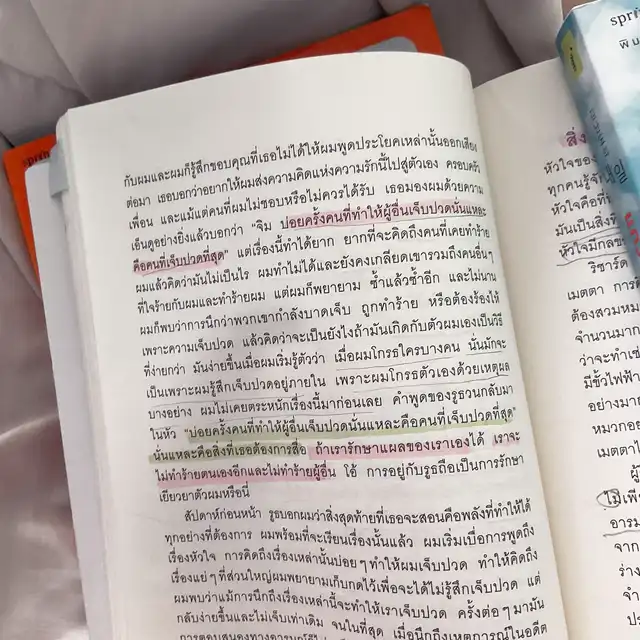 กับผมและผมก็รู้สึกขอบคุณที่เธอไม่ได้ให้ผมพูดประโยคเหล่านั้นออกเสียง
ต่อมา เธอบอกว่าอยากให้ผมส่งความคิดแห่งความรักนี้ไปสู่ตัวเอง ครอบครัว
เพื่อน และแม้แต่คนที่ผมไม่ชอบหรือไม่ควรได้รับ เธอมองผมด้วยความ
เอ็นดูอย่างยิ่งแล้วบอกว่า "จิม บ่อยครั้งคนที่ทำให้ผู้อื่นเจ็บปวดนั่นแหละ
คือคนที่เจ็บปวดที่สุด" แต่เรื่องนี้ทำได้ยาก ยากที่จะคิดถึงคนที่เคยทำร้าย
ผมแล้วคิดว่ามันไม่เป็นไร ผมทำไม่ได้และยังคงเกลียดเขารวมถึงคนอื่นๆ
ที่ใจร้ายกับผมและทำร้ายผม แต่ผมก็พยายาม ซ้ำแล้วซ้ำอีก และไม่นาน
ผมก็พบว่าการนึกว่าพวกเขากำลังบาดเจ็บ ถูกทำร้าย หรือต้องร้องไห้
เพราะความเจ็บปวด แล้วคิดว่าจะเป็นยังไงถ้ามันเกิดกับตัวผมเองเป็นวิธี
ที่ง่ายกว่า มันง่ายขึ้นเมื่อผมเริ่มรู้ตัวว่า เมื่อผมโกรธใครบางคน นั่นมักจะ
เป็นเพราะผมรู้สึกเจ็บปวดอยู่ภายใน เพราะผมโกรธตัวเองด้วยเหตุผล
บางอย่าง ผมไม่เคยตระหนักเรื่องนี้มาก่อนเลย คำพูดของรูธวนกลับมา
ในหัว "บ่อยครั้งคนที่ทำให้ผู้อื่นเจ็บปวดนั่นแหละคือคนที่เจ็บปวดที่สุด"
นั่นแหละคือสิ่งที่เธอต้องการสื่อ ถ้าเรารักษาแผลของเราเองได้ เราจะ
ไม่ทำร้ายตนเองอีกและไม่ทำร้ายผู้อื่น โอ้ การอยู่กับรูธถือเป็นการรักษา
เยียวยาตัวผมหรือนี่
สัปดาห์ก่อนหน้า รูธบอกผมว่าสิ่งสุดท้ายที่เธอจะสอนคือพลังที่ทำให้ได้
ทุกอย่างที่ต้องการ ผมพร้อมที่จะเรียนเรื่องนั้นแล้ว ผมเริ่มเบื่อการพูดถึง
เรื่องหัวใจ การคิดถึงเรื่องเหล่านั้นบ่อยๆ ทำให้ผมเจ็บปวด ทำให้คิดถึง
เรื่องแย่ๆ ที่ส่วนใหญ่ผมพยายามเก็บกดไว้เพื่อจะได้ไม่รู้สึกเจ็บปวด แต่
ผมพบว่าแม้การนึกถึงเรื่องเหล่านี้จะทำให้เราเจ็บปวด ครั้งต่อๆ มามัน
กลับง่ายขึ้นและไม่เจ็บเท่าเดิม จนในที่สุด เมื่อนึกถึงเหตุการณ์ในอดีต
สิ่ง
หัวใจของ
ทุกคนรู้จัก
หัวใจคือที่
มันเป็นสิ่งที่
หัวใจมีกล
ริชาร์ด
เมตตา การ
ต้องสวมหม
จำนวนมาก
ว่าจะทำเช่
มีขั้วไฟฟ้า
อย่างมาก
หมวกออ
เมตตาไ
ผู้
ไม่เพีย
อารม
จาก
ร่าง
จำ